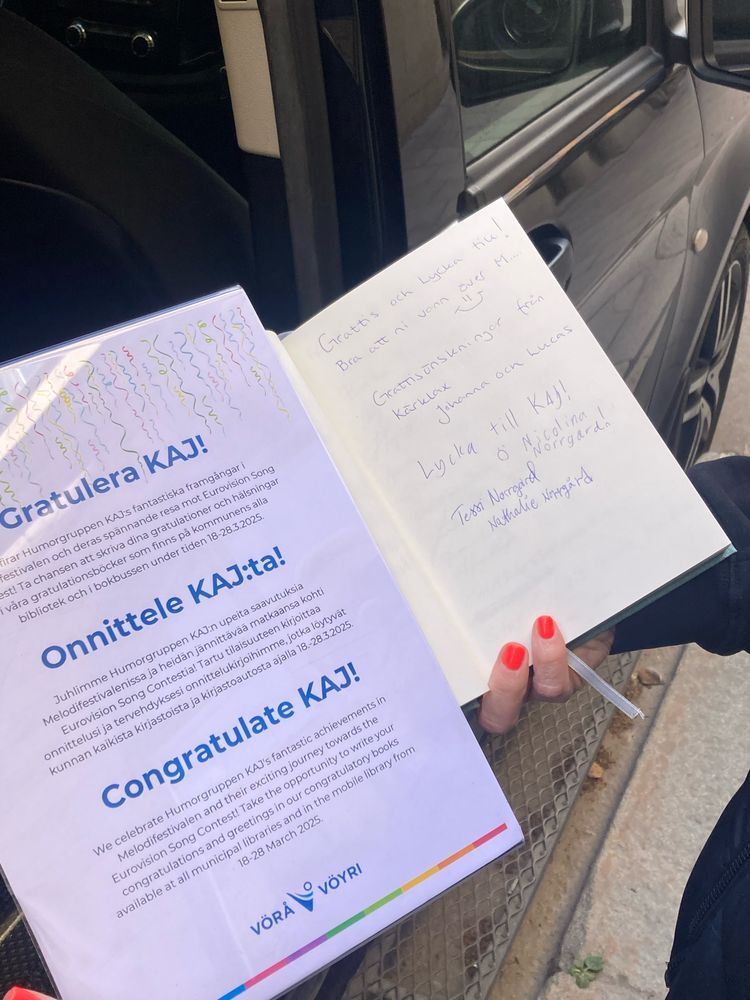 Gratulera KAJ!
firar Humorgruppen KAJ:s fantastiska framgångar i
festivalen och deras spännande resa mot Eurovision Song
est! Ta chansen att skriva dina gratulationer och hälsningar
i våra gratulationsböcker som finns på kommunens alla
bibliotek och i bokbussen under tiden 18-28.3.2025.
Onnittele KAJ:ta!
Juhlimme Humorgruppen KAJ:n upeita saavutuksia
Melodifestivalenissa ja heidän jännittävää matkaansa kohti
Eurovision Song Contestia! Tartu tilaisuuteen kirjoittaa
onnittelusi ja tervehdyksesi onnittelukirjoihimme, jotka löytyvät
kunnan kaikista kirjastoista ja kirjastoautosta ajalla 18.-28.3.2025.
Congratulate KAJ!
We celebrate Humorgruppen KAJ's fantastic achievements in
Melodifestivalen and their exciting journey towards the
Eurovision Song Contest! Take the opportunity to write your
congratulations and greetings in our congratulatory books
available at all municipal libraries and in the mobile library from
18-28 March 2025.
VÖRÅ VÖYRI
Grattis och Lycka till!
Bra att ni vann över M....
Grattisönskningar från
Kärklax Johanna och Lucas
Lycka till KAJ!
Ö Nicolina
Norrgård!
Tessi Norrgård
Nathalie Norrgård